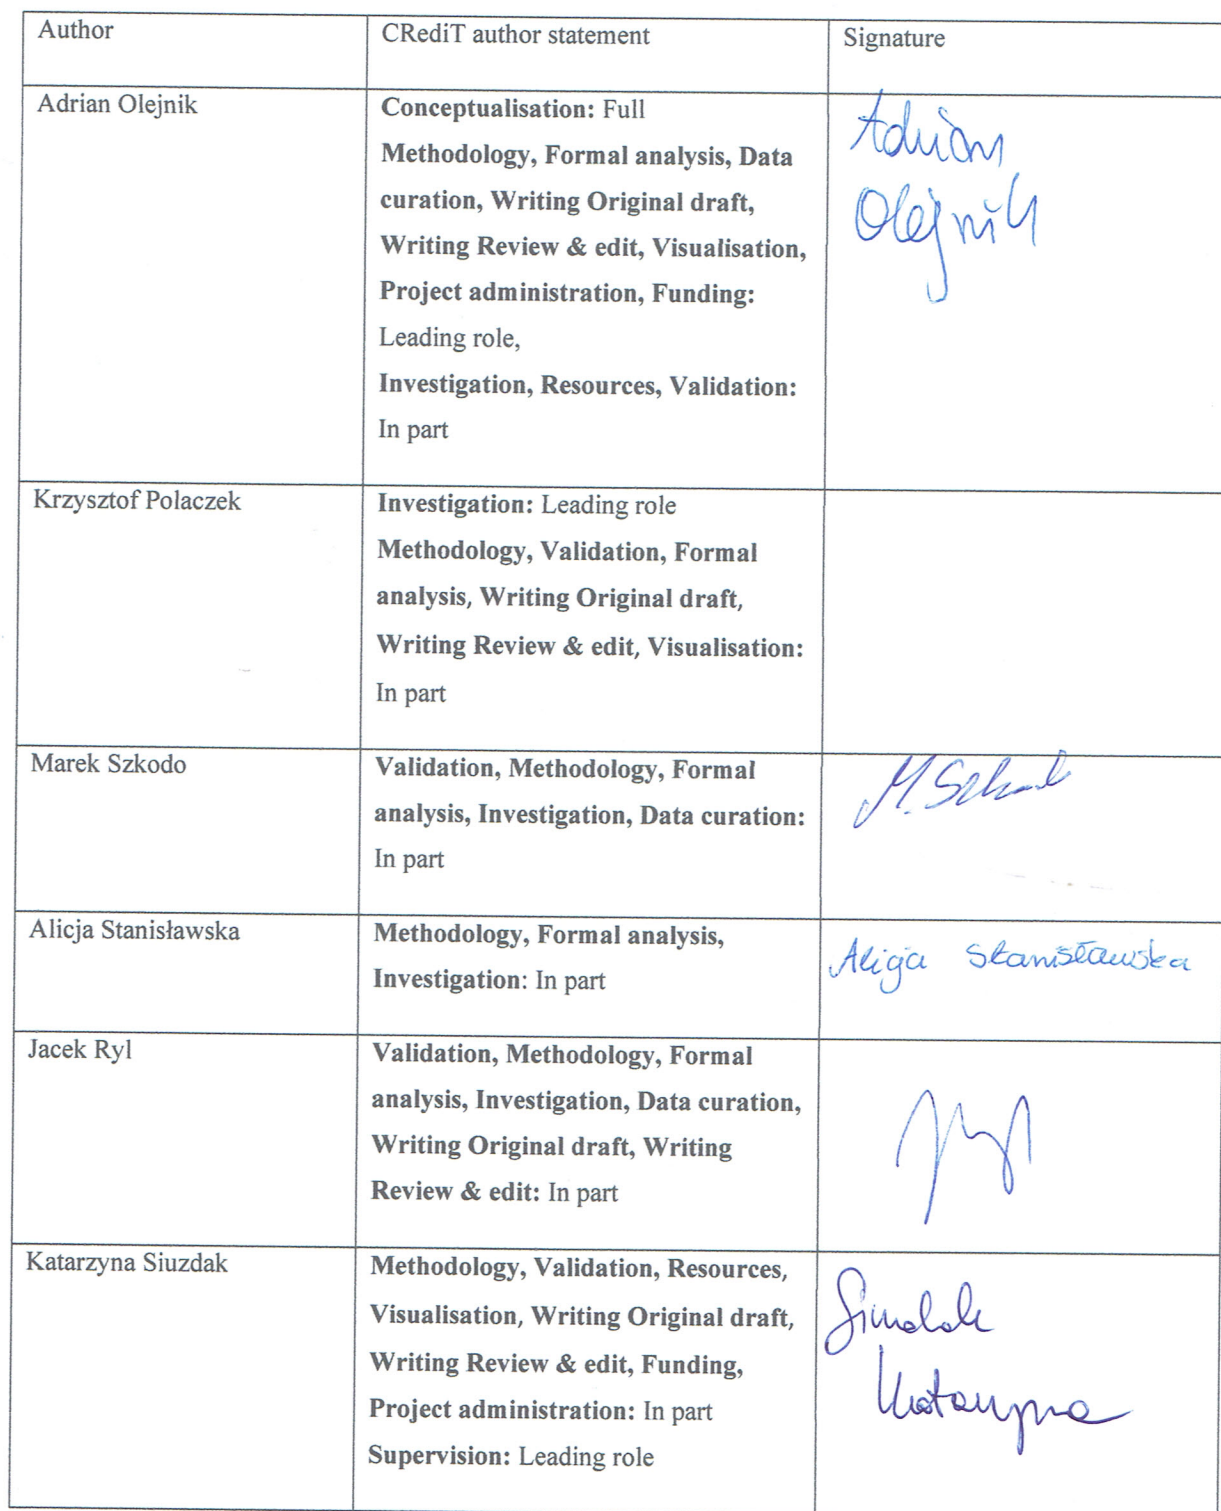 Author
CRediT author statement
Signature
Adrian Olejnik
Conceptualisation: Full
Methodology, Formal analysis, Data
curation, Writing Original draft,
Writing Review & edit, Visualisation,
Project administration, Funding:
Leading role,
Investigation, Resources, Validation:
In part
Adrian
Olejnik
Krzysztof Polaczek
Investigation: Leading role
Methodology, Validation, Formal
analysis, Writing Original draft,
Writing Review & edit, Visualisation:
In part
Marek Szkodo
Validation, Methodology, Formal
analysis, Investigation, Data curation:
In part
Alicja Stanisławska
Methodology, Formal analysis,
Investigation: In part
Alicja Stanisławska
Jacek Ryl
Validation, Methodology, Formal
analysis, Investigation, Data curation,
Writing Original draft, Writing
Review & edit: In part
Katarzyna Siuzdak
Methodology, Validation, Resources,
Visualisation, Writing Original draft,
Writing Review & edit, Funding,
Project administration: In part
Supervision: Leading role
Siuzdak
Katarzyna